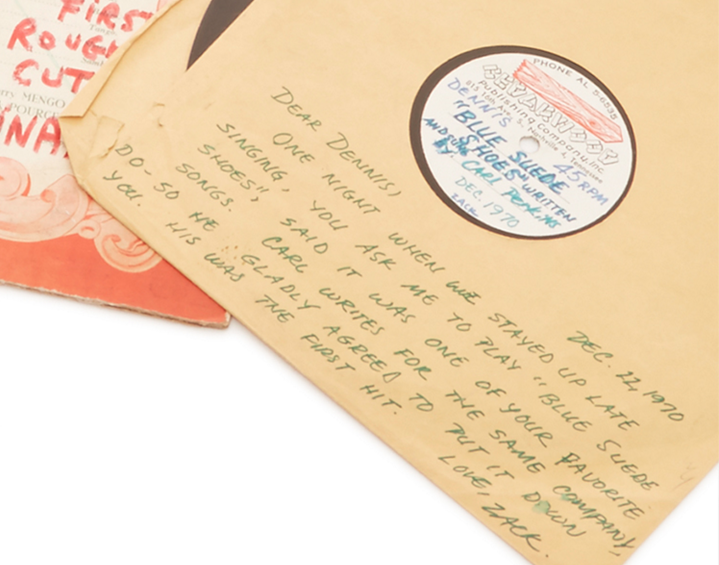 FIRS
ROUGH
CUT
MENGO
POURCE
NNA
PHONE AL 5-6535
CEDARWOOD
Publishing Company, Inc.
815 16th Ave. S., Nashville 4, Tennessee
DENNIS 45 RPM
"BLUE SUEDE
SHOES" WRITTEN
AND SUNG
BY CARL PERKINS
DEC. 1970
ZACK
DEC. 22, 1970
DEAR DENNIS,
ONE NIGHT WHEN WE STAYED UP LATE
SINGING, YOU ASK ME TO PLAY "BLUE SUEDE
SHOES", SAID IT WAS ONE OF YOUR FAVORITE
SONGS. CARL WRITES FOR THE SAME COMPANY
DO- SO HE GLADLY AGREED TO PUT IT DOWN
YOU. HIS WAS THE FIRST HIT.
LOVE, ZACK.